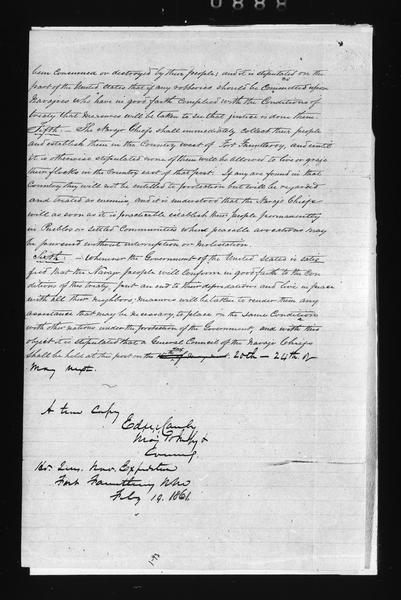 0888
been consumed or destroyed by their people; and it is stipulated on the
part of the United States that if any robberies should be committed upon
Navajoes who have in good faith complied with the conditions of
treaty that measures will be taken to see that justice is done them.
Fifth: – The Navajo Chiefs shall immediately collect their people
and establish them in the Country west of Fort Fauntleroy, and until
it is otherwise stipulated none of them will be allowed to live or graze
their flocks in the Country east of that post. If any are found in that
Country they will not be entitled to protection but will be regarded
and treated as enemies, and it is understood that the Navajo Chiefs
will as soon as it is practicable establish their people permanently
in Pueblos or settled Communities where peaceable avocations may
be pursued without interruption or molestation.
Sixth: – Whenever the Government of the United States is satis
fied that the Navajo people will conform in good faith to the Con
ditions of this treaty, put an end to their depredations and live in peace
with all their neighbors; measures will be taken to render them any
assistance that may be necessary, to place on the same Condition
with other nations under the protection of the Government, and with this
object it is stipulated that a General Council of the Navajo Chiefs
shall be held at this post on the 20th – 24th of
May next.
A true Copy
Ed. R. S. Canby
Maj. 10th Inf. &
Comdg.
Hd. Qrs. Nav. Expedition
Fort Fauntleroy N.M.
Feby 19. 1861.